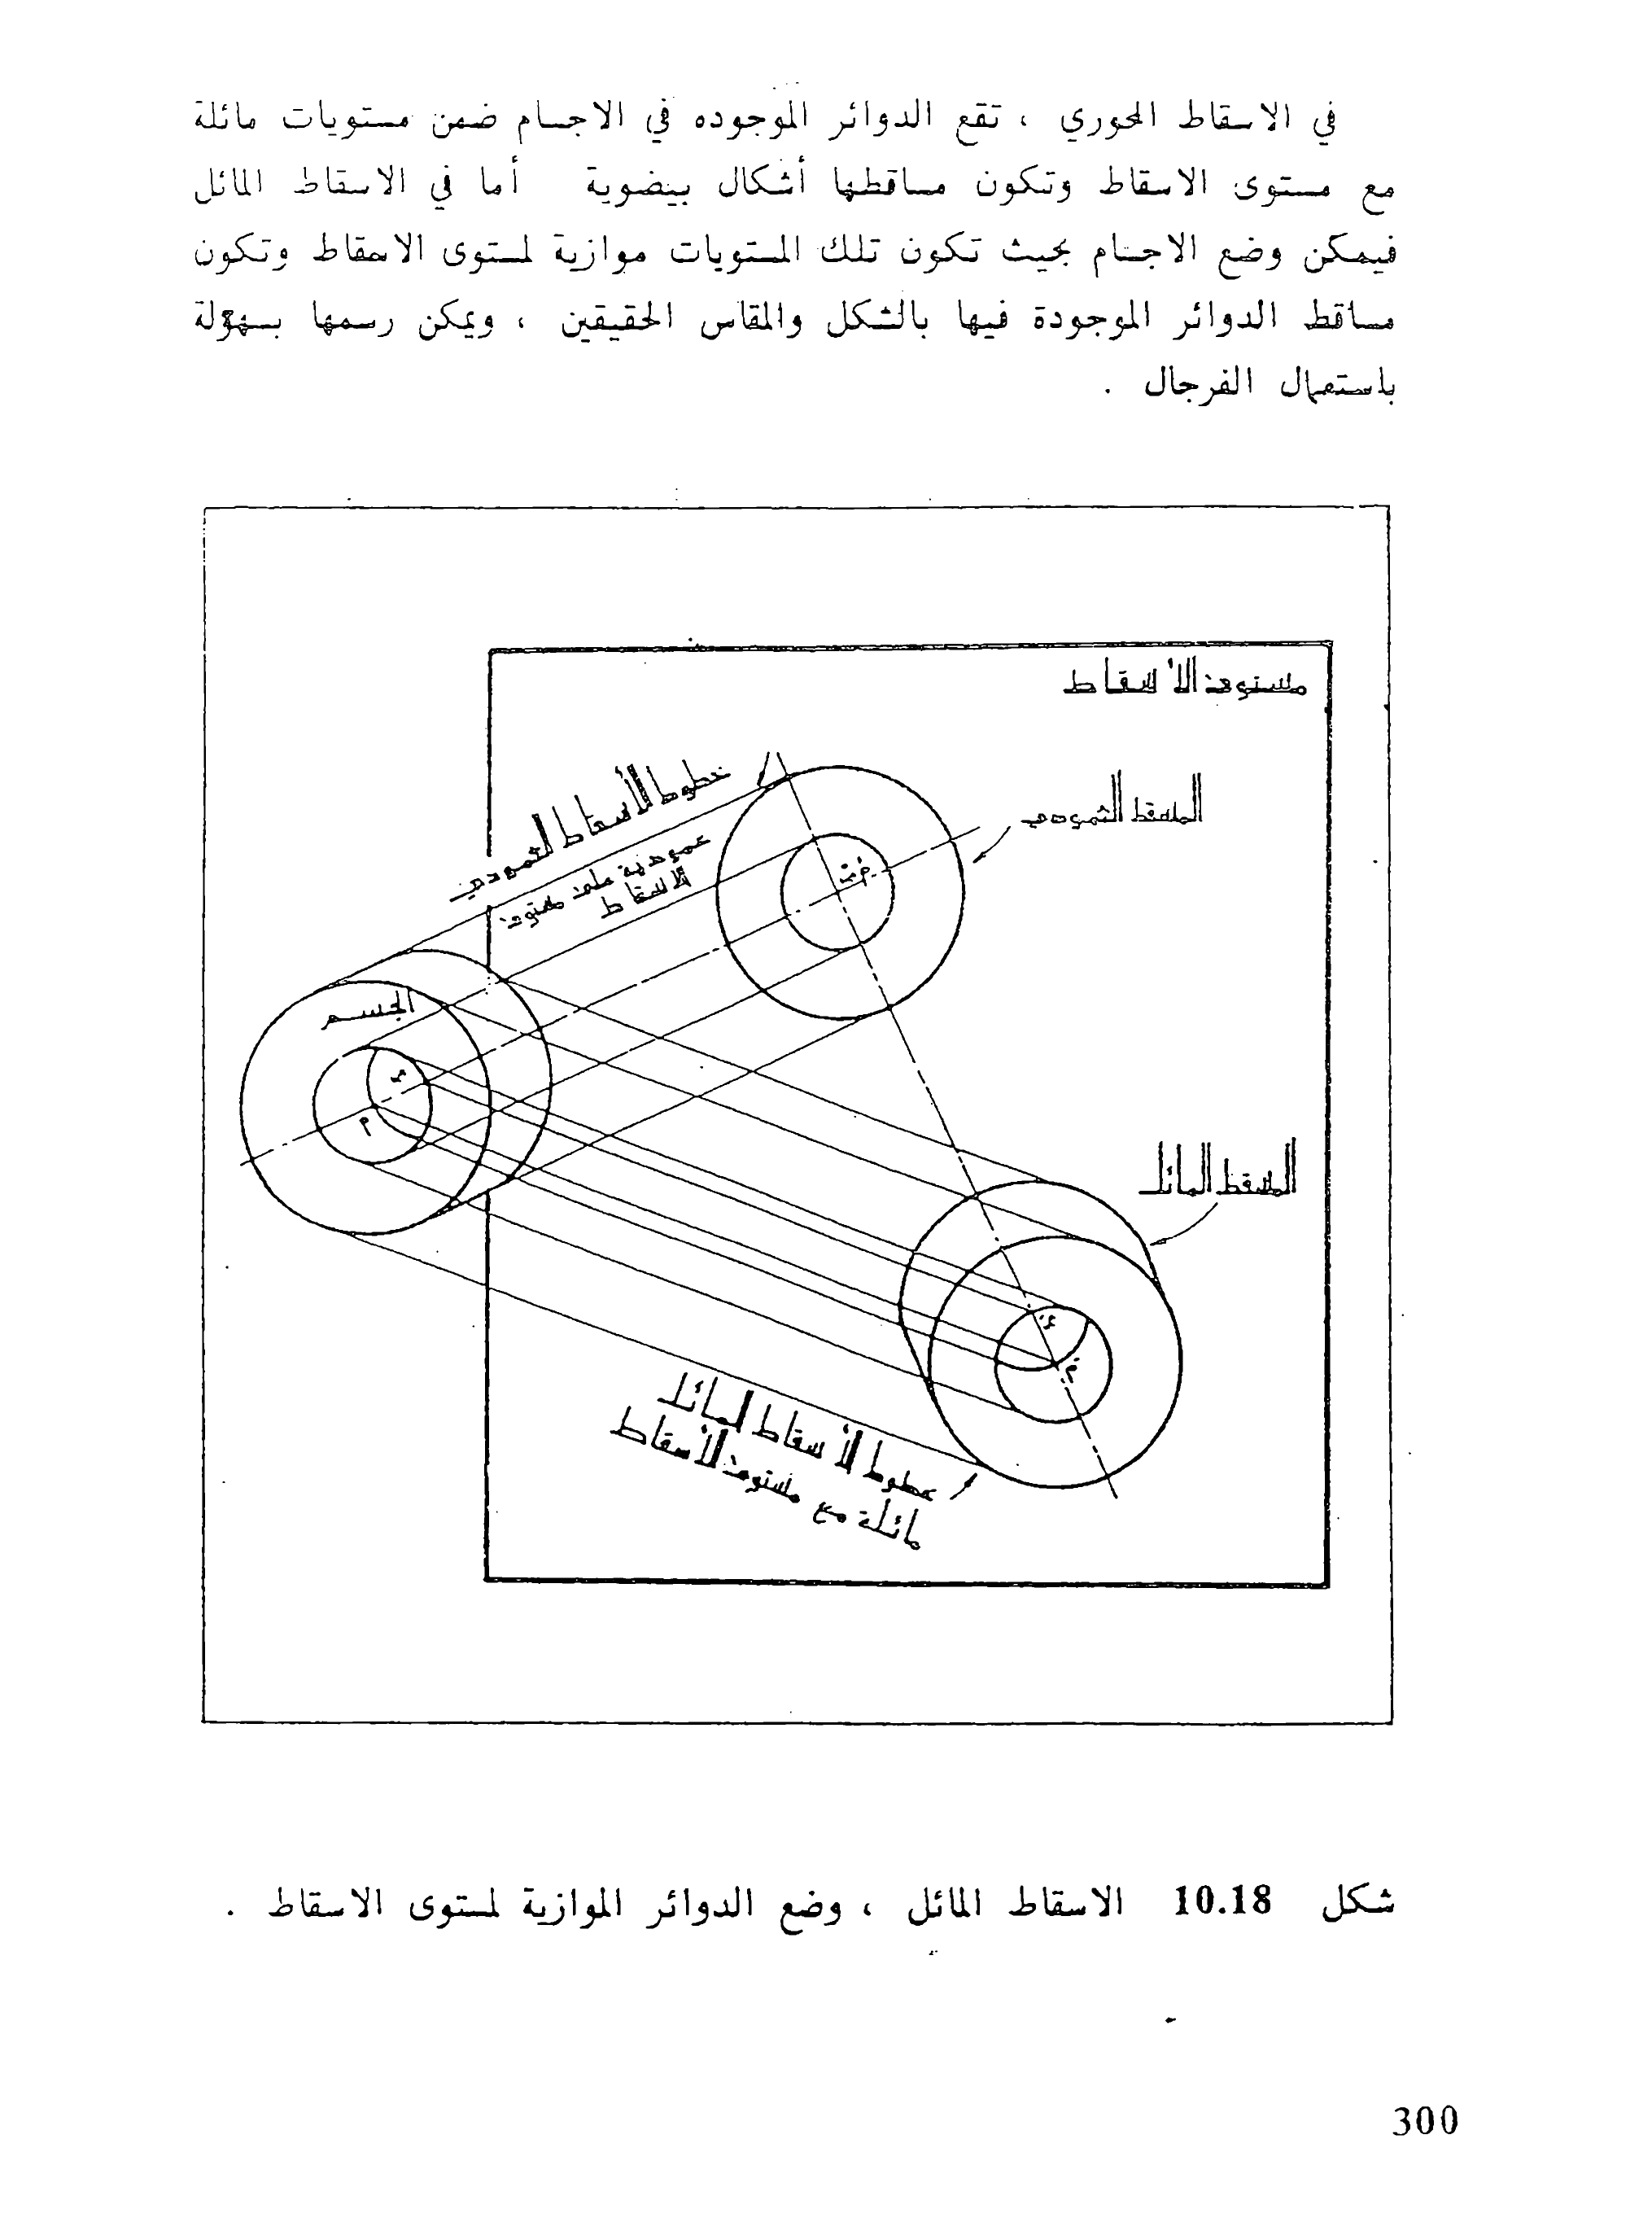 في الاسقاط المحوري ، تقع الدوائر الموجوده في الاجسام ضمن مستويات مائلة
مع مستوى الاسقاط وتكون مساقطها أشكال بيضوية أما في الاسقاط المائل
فيمكن وضع الاجسام بحيث تكون تلك المستويات موازية لمستوى الاسقاط وتكون
مساقط الدوائر الموجودة فيها بالشكل والمقاس الحقيقين ، ويمكن رسمها بسهولة
باستعمال الفرجال .
مستوى الأسقاط
خطوط الأسقاط العمودي
عمودية على مستوى
الاسقاط
المسقط العمودي
الجسم
م
المسقط المائل
خطوط الأسقاط المائل
مائلة مع مستوى الأسقاط
شكل 10.18 الاسقاط المائل ، وضع الدوائر الموازية لمستوى الاسقاط .
300